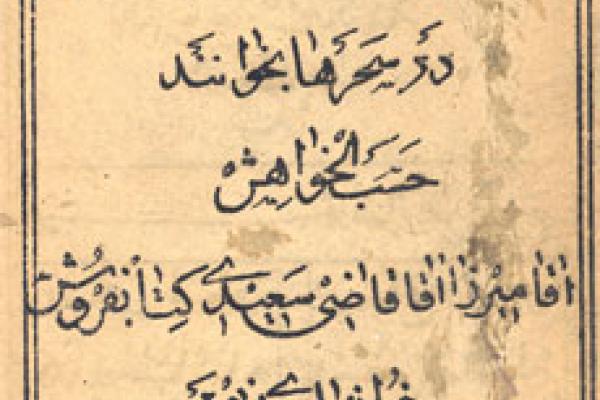 در سحرها بخوانند
حسب الخواهش
اقا میرزا اقا قاضی سعیدی کتابفروش